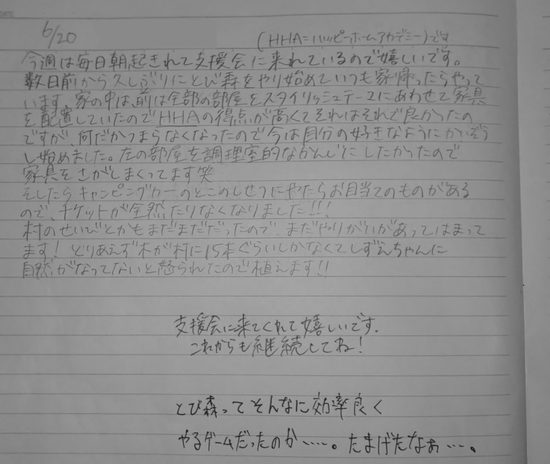 6/20
(HHA=ハッピーホームアカデミー)です
今週は毎日朝起きれて支援会に来れているので嬉しいです。
数日前から久しぶりにとび森をやり始めていつも家帰ったらやって
います。家の中は、前は全部の部屋をスタイリッシュテーマにあわせて家具
を配置していたのでHHAの得点が高くてそれはそれで良かったの
ですが、何だかつまらなくなったので今は自分の好きなようにかいぞう
し始めました。左の部屋を調理室的なかんじにしたかったので
家具をさがしまくってます笑
そしたらキャンピングカーのとこのしせつにやたらお目当てのものがある
ので、チケットが全然たりなくなりました!!!
村のせいびとかもまだまだだったので、まだやりがいがあってはまって
ます! とりあえず木が村に15本ぐらいしかなくてしずえちゃんに
自然がなってないと怒られたので植えます!!
支援会に来てくれて嬉しいです。
これからも継続してね!
とび森ってそんなに効率良く
やるゲームだったのか……。たまげたなぁ…。